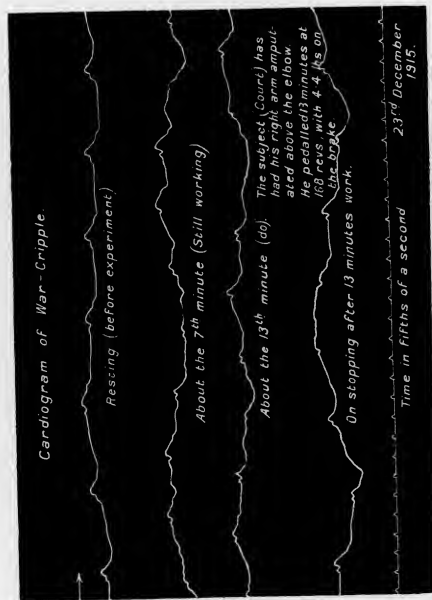 Cardiogram of War-Cripple.
Resting (before experiment)
About the 7th minute (Still working)
About the 13th minute (do).
The subject (Court) has
had his right arm amput-
ated above the elbow.
He pedalled 13 minutes at
168 revs, with 4·4 on
the brake.
On stopping after 13 minutes work.
Time in fifths of a second
23rd December
1915.